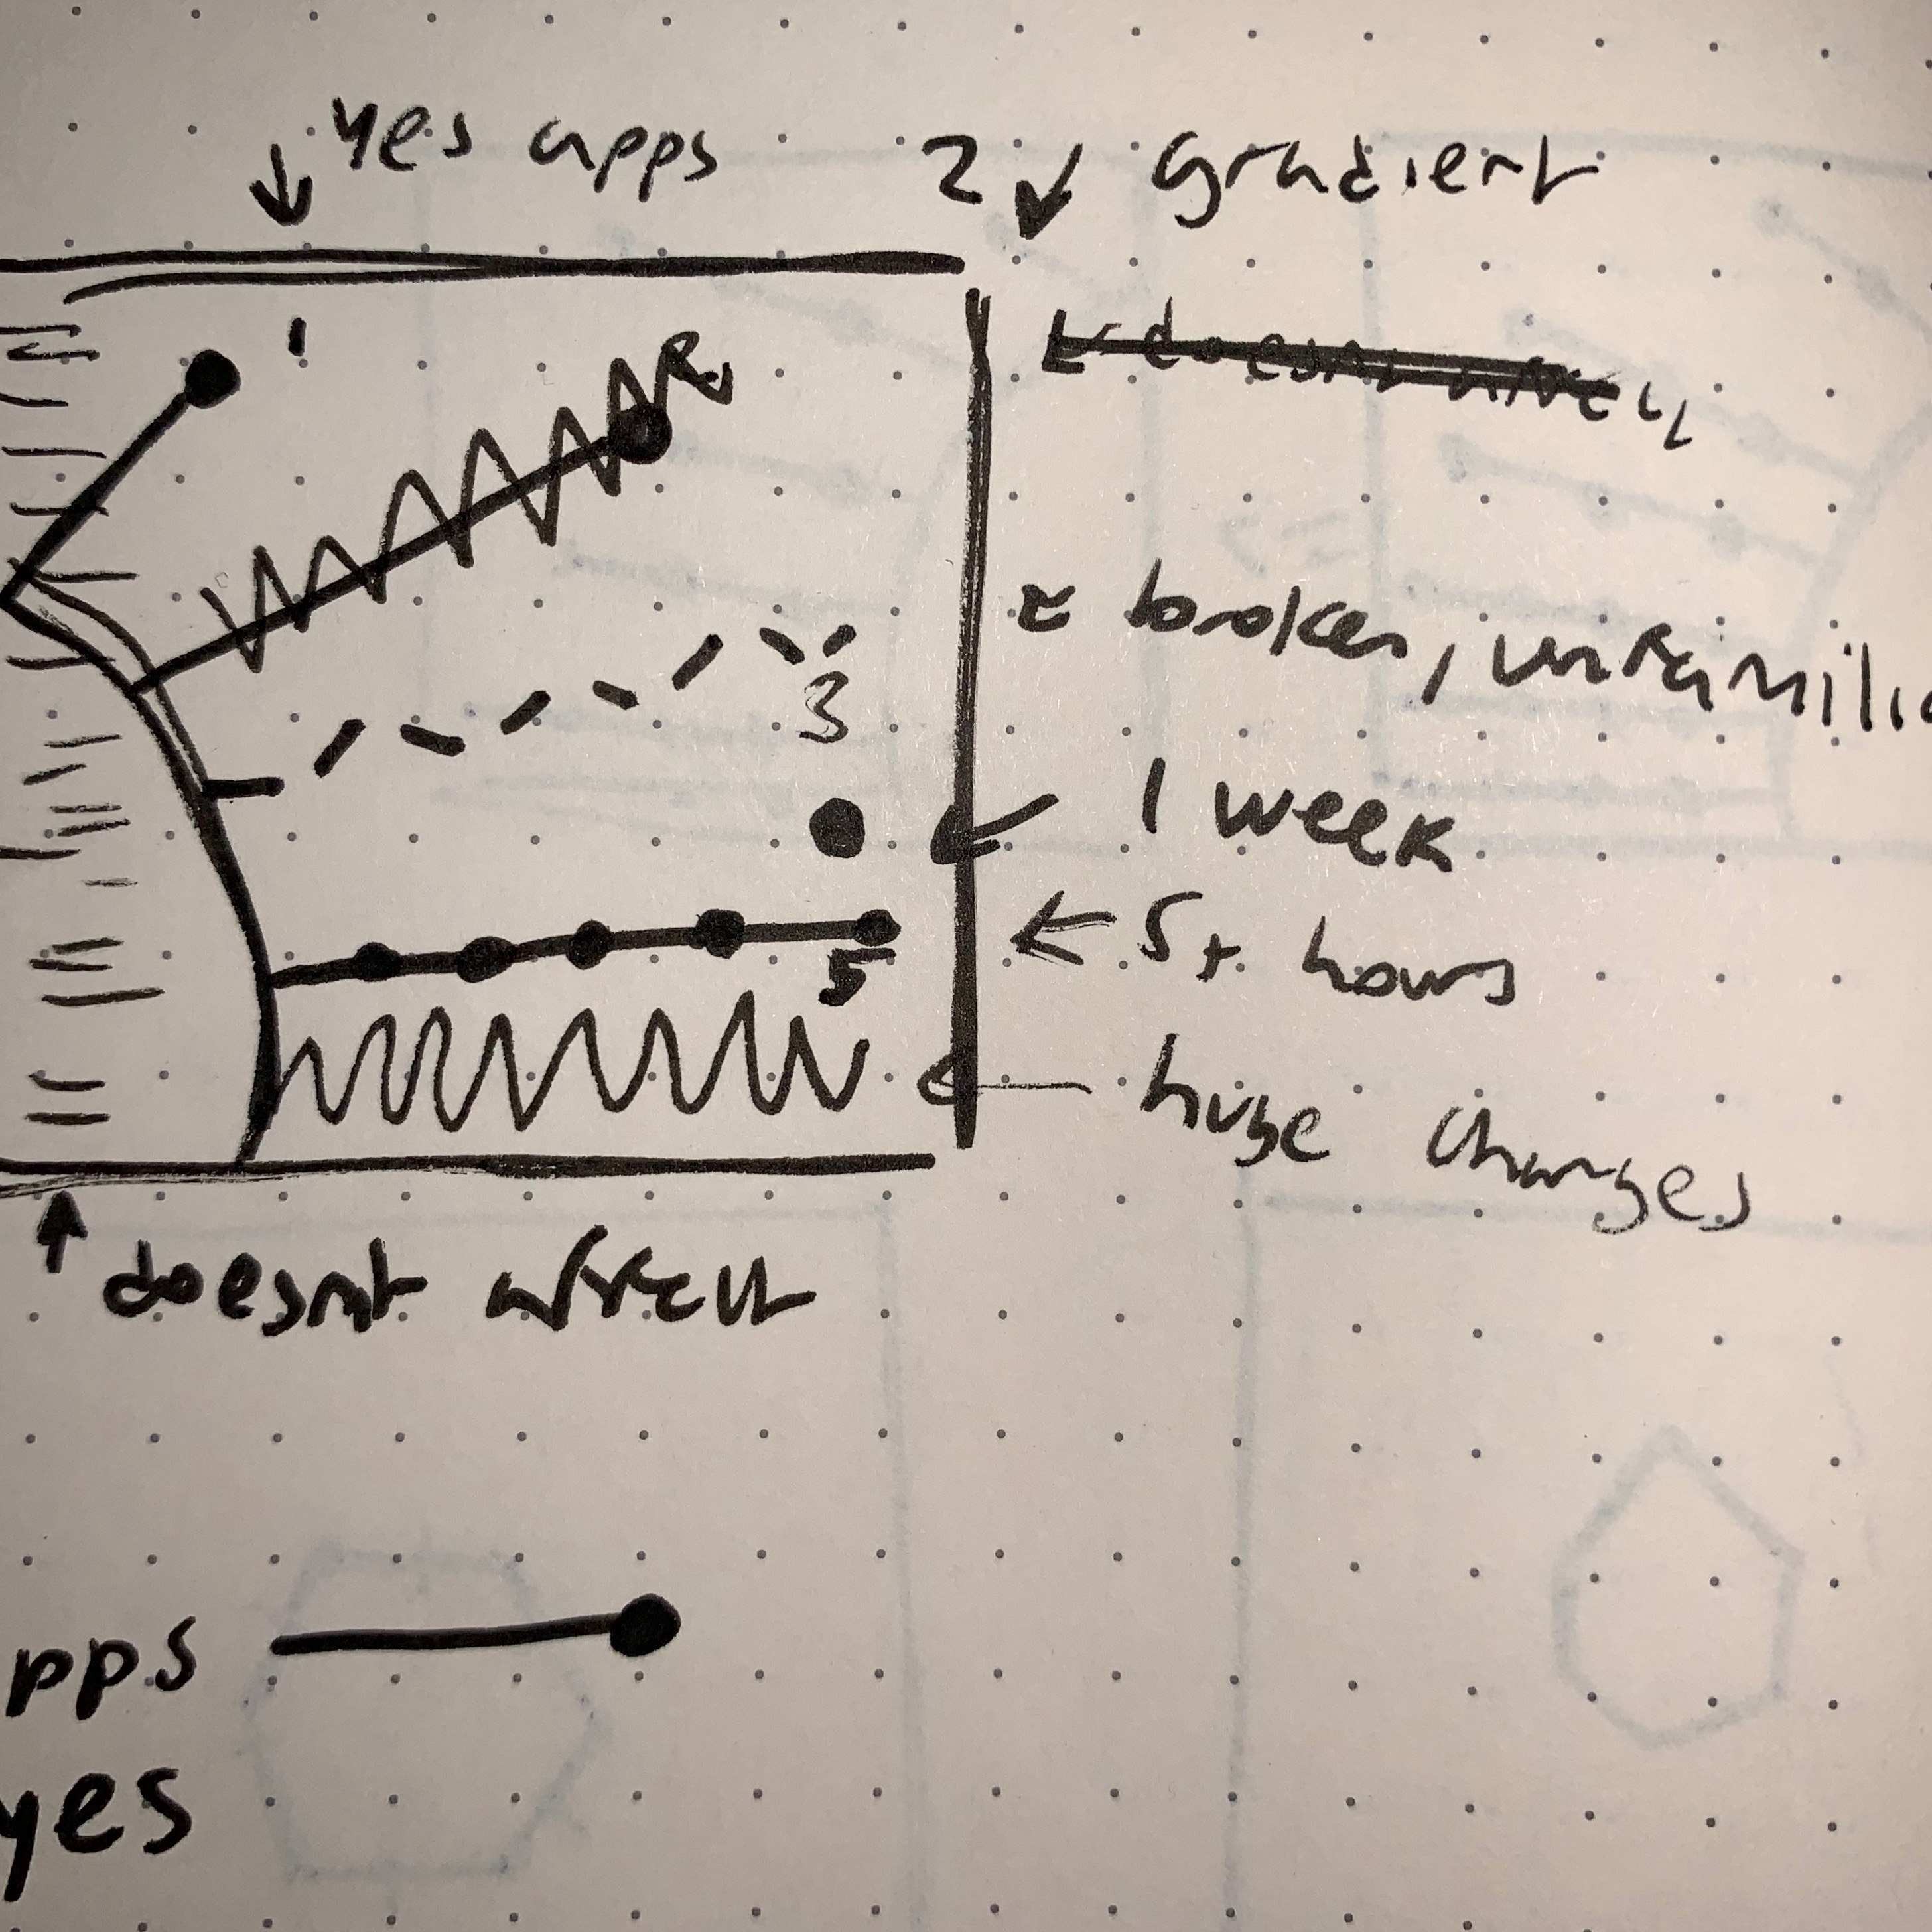 yes apps
2 gradient
1
2
3
broken, unfamilia
1 week
5+ hours
5
huge changes
doesnt affect
pps
yes